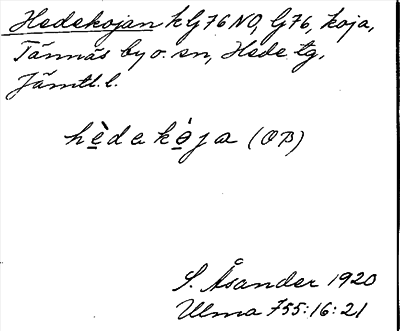 Hedekojan k G76 NO, G76, koja,
Tännäs by o. sn, Hede tg,
Jämtl. l.
hède kò̱ja (OB)
S. Åsander 1920
Ulma 755:16:21